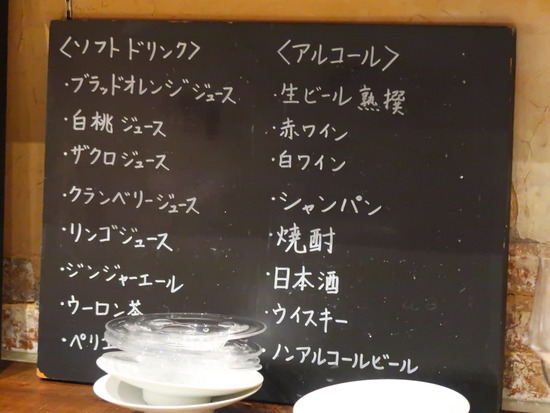 〈ソフトドリンク〉
・ブラッドオレンジジュース
・白桃ジュース
・ザクロジュース
・クランベリージュース
・リンゴジュース
・ジンジャーエール
・ウーロン茶
・ペリエ
〈アルコール〉
・生ビール 熟撰
・赤ワイン
・白ワイン
・シャンパン
・焼酎
・日本酒
・ウイスキー
・ノンアルコールビール